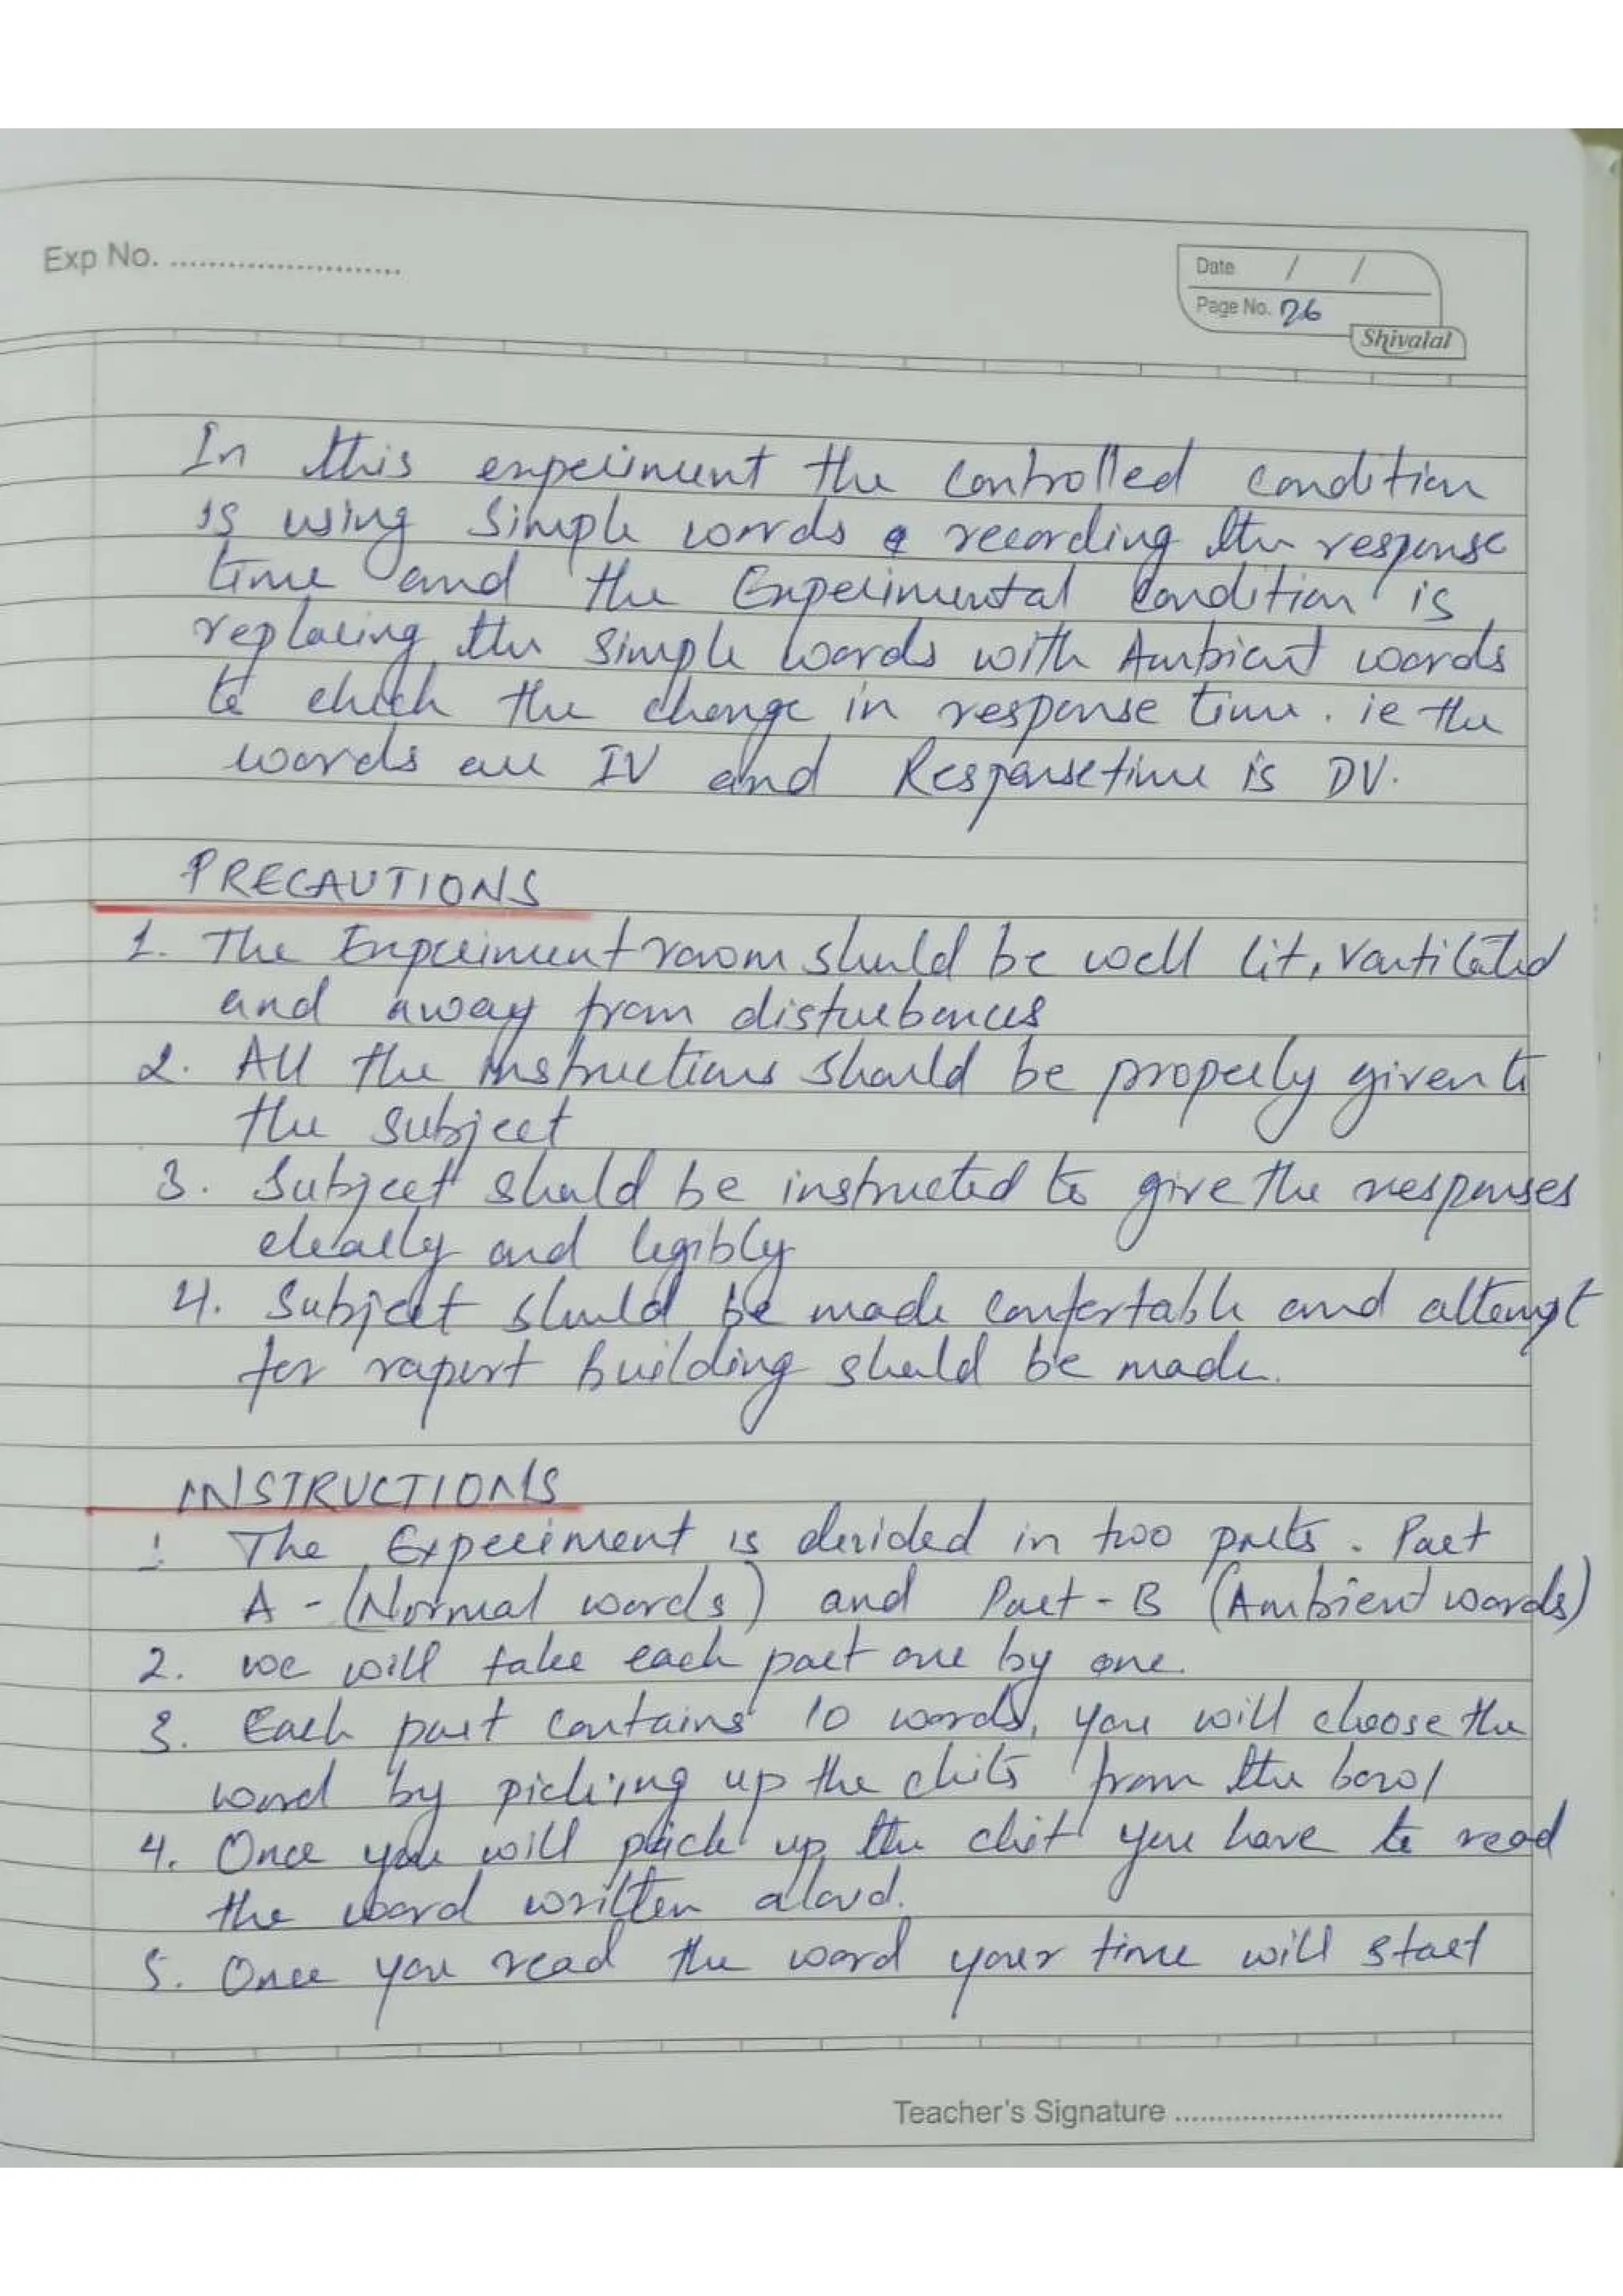 Exp No. ........................
Date / /
Page No. 26
Shivalal
In this experiment the controlled condition
is using simple words & recording the response
time and the Experimental condition is
replacing the simple words with Ambient words
to check the change in response time. ie the
words are IV and Response time is DV.
PRECAUTIONS
1. The Experiment room should be well lit, ventilated
and away from disturbances
2. All the instructions should be properly given to
the subject
3. Subject should be instructed to give the responses
clearly and legibly
4. Subject should be made confortable and attempt
for raport building should be made.
INSTRUCTIONS
1. The Experiment is divided in two parts. Part
A - (Normal words) and Part - B (Ambient words)
2. we will take each part one by one.
3. Each part contains 10 words, you will choose the
word by picking up the chits from the bowl
4. Once you will pick up the chit you have to read
the word written aloud.
5. Once you read the word your time will start
Teacher's Signature ........................................